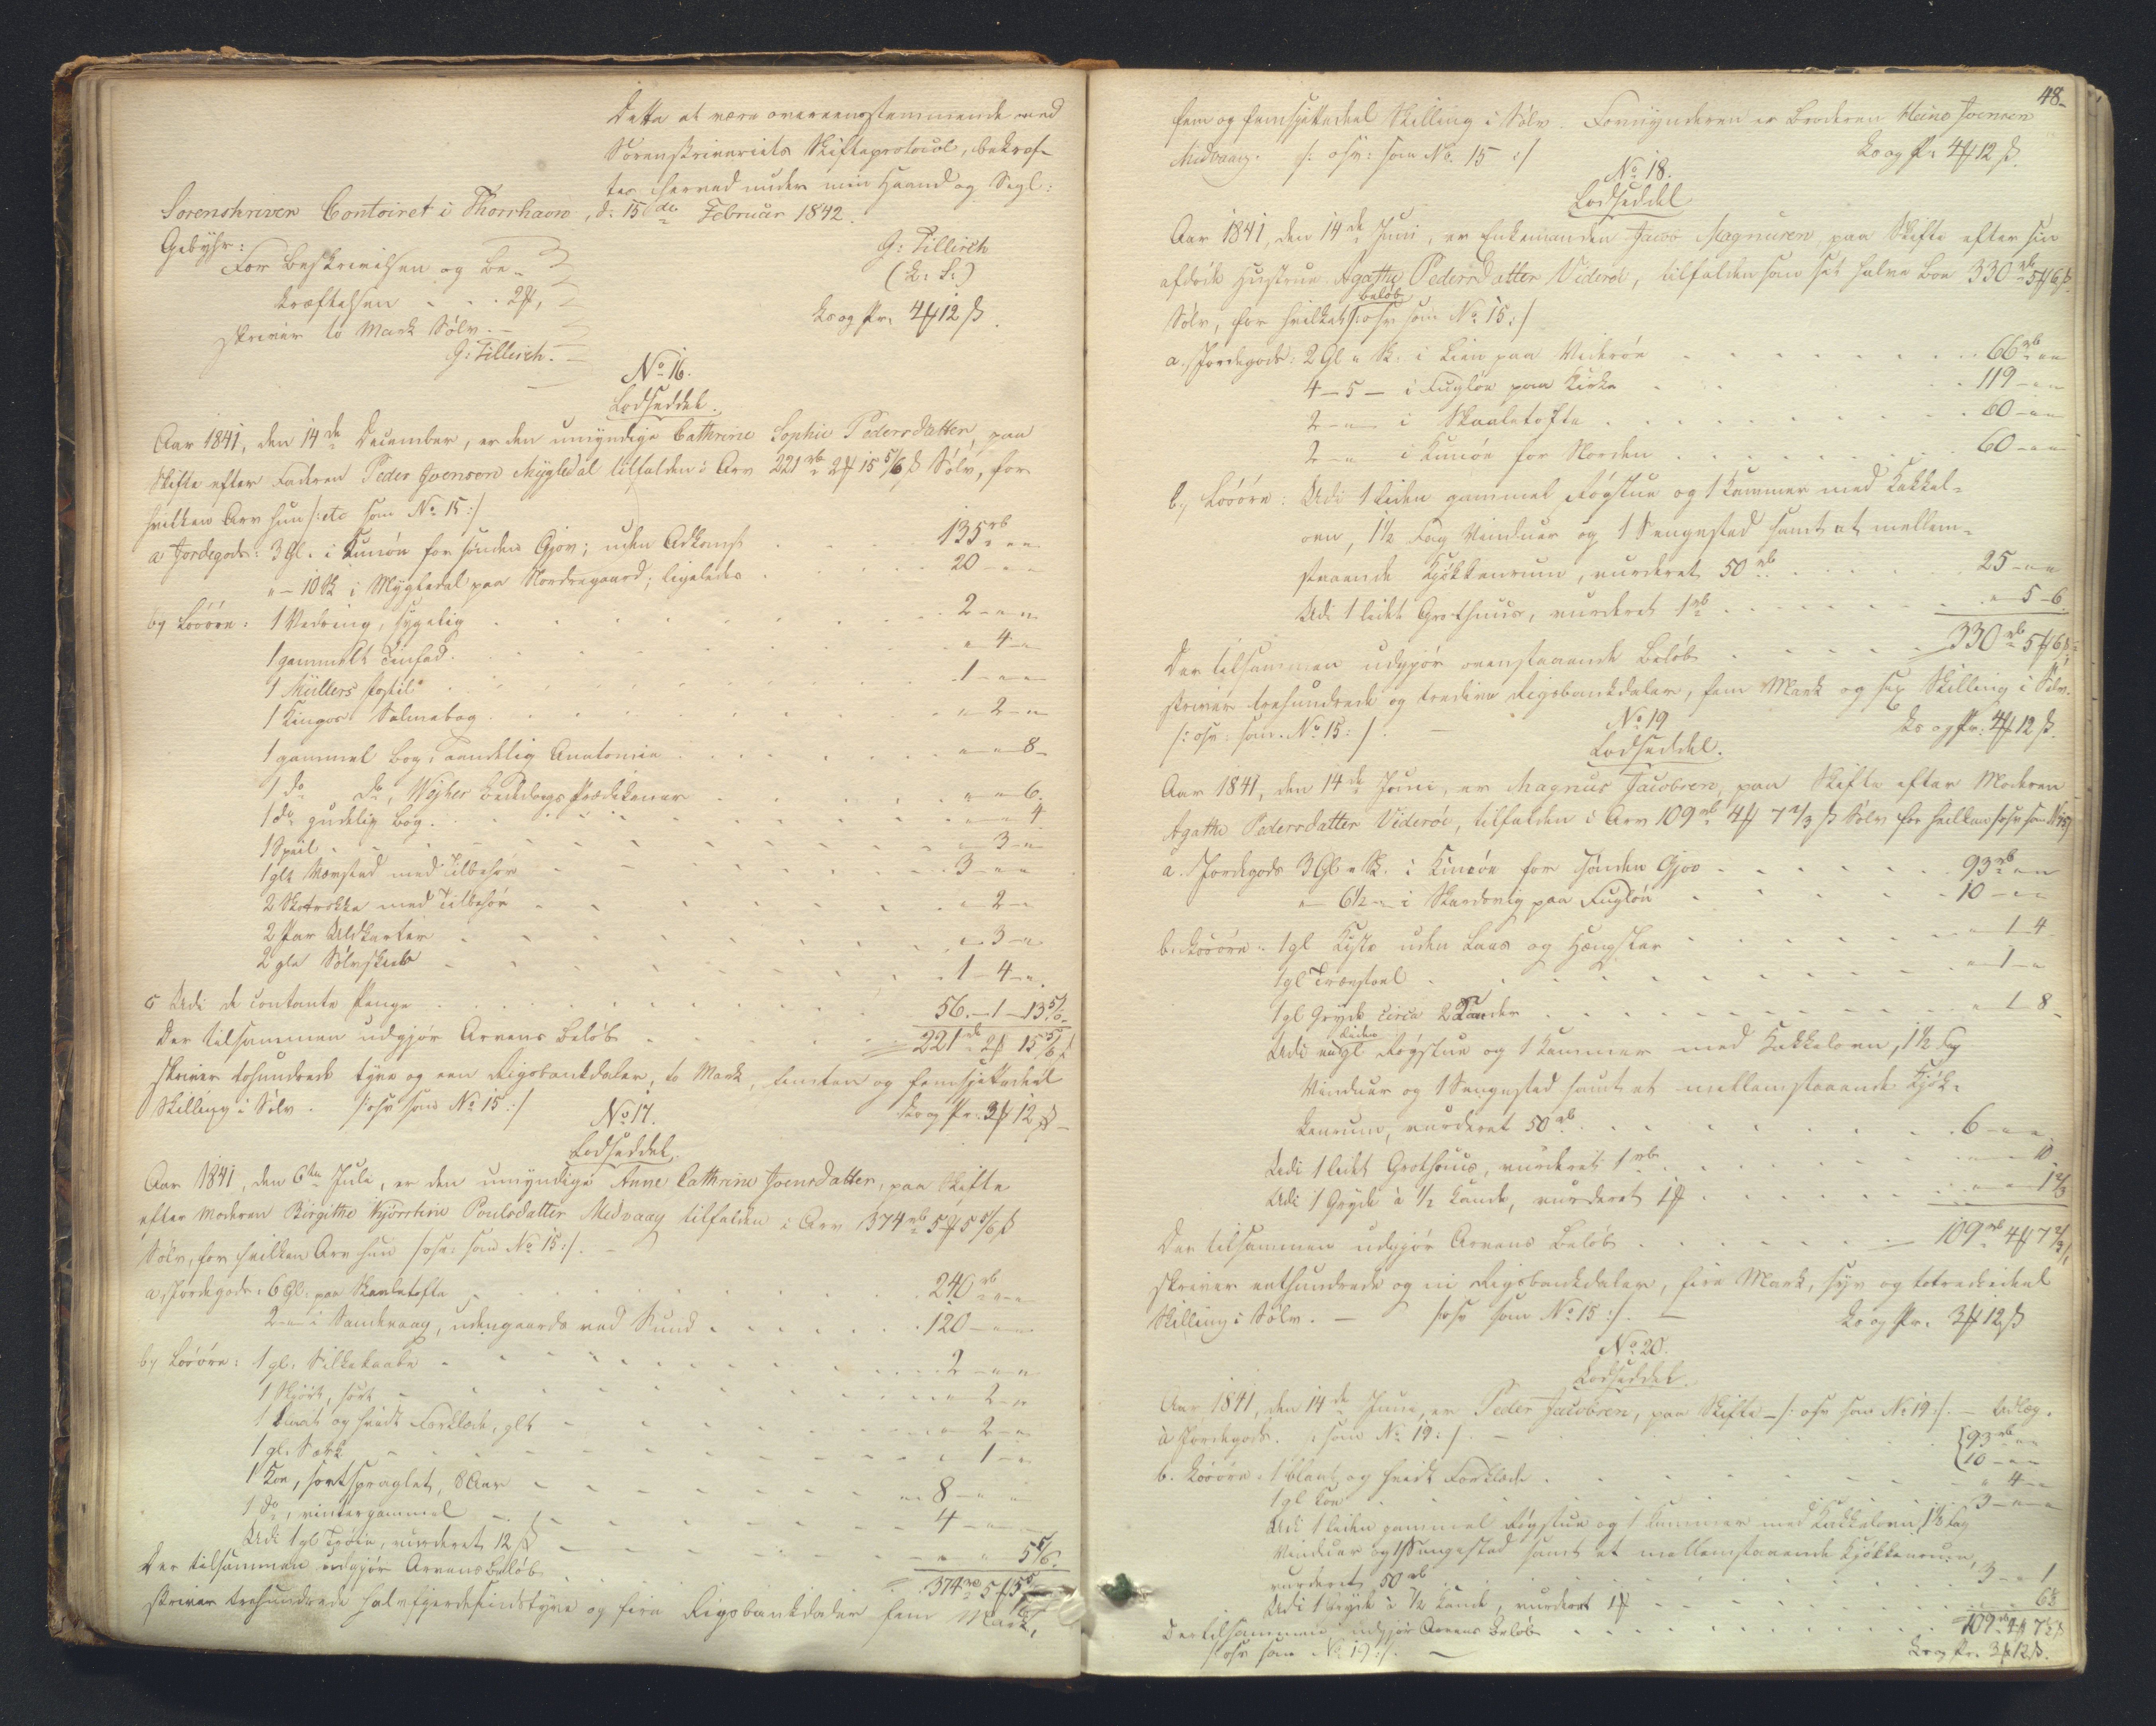 Dette at være overeensstemmende med
Sorenskriveriets Skifteprotocol, bekræf-
tes herved under min Haand og Segl:
Sorenskriver Contoiret i Thorshavn, d: 15de Februar 1842.
G: Tillisch
(L: S:)
Gebyhr:
For Beskrivelsen og Be-
kræftelsen . . . 2 ℳ,
skriver to Mark Sølv. -
G: Tillisch. -
Ks og Pr: 4 ℳ 12 ß.
No 16.
Lodseddel.
Aar 1841, den 14de December, er den umyndige Cathrine Sophie Pedersdatter, paa
Skifte efter Faderen Peder Joensen Mygledal tilfalden i Arv 221 rb 2 ℳ 15 5/6 ß Sølv, for
hvilken Arv hun /: etc som No 15 :/
a Jordegods: 3 Gl. i Kunøe for sønden Gjov; uden Adkomst . . 135 rb " "
" - 10 Sk i Mygledal paa Nordregaard; ligeledes . . 20 - " "
b, Løsøre: 1 Vædring, sygelig . . 2 - " - "
1 gammelt Tinfad . . " 4 - "
1 Müllers Postil . . 1 - " - "
1 Kingos Salmebog . . " - 2 - "
1 gammel Bog, aandelig Anatomie . . " - " 8 -
1 do do, Wejhes Bededags Prædikener . . " - " 6.
1 do gudelig Bog . . " - " 4
1 Speil . . " 3 - "
1 glt Vævstad med Tilbehør . . 3 - " "
2 Skotrokke med Tilbehør . . " 2 - "
2 Par Uldkarter . . " 3 - "
2 gle Sølvskeer . . 1 - 4 - "
c Udi de contante Penge . . 56. - 1 - 13 5/6
Der tilsammen udgjør Arvens Beløb . . 221 rb 2 ℳ 15 5/6 ß
skriver tohundrede tyve og een Rigsbankdaler, to Mark, femten og femsjettedeel
Skilling i Sølv. /: osv som No 15 :/ Ks og Pr: 3 ℳ 12 ß
No 17.
Lodseddel.
Aar 1841, den 6te Juli, er den umyndige Anne Cathrine Joensdatter, paa Skifte
efter Moderen Birgithe Kjerstine Poulsdatter Midvaag tilfalden i Arv 374 rb 5 ℳ 5 5/6 ß
Sølv, for hvilken Arv hun /: osv: som No 15 :/. -
a, Jordegods: 6 Gl. paa Skaaletofte . . 240 rb " - "
2 - " i Sandevaag, udengaards ved Sund . . 120 - " "
b, Løsøre: 1 gl. Silkekaabe . . 2 - " "
1 Skjørt, sort . . " 2 - "
1 blaat og hvidt Forklæde, glt . . " 2 - "
1 gl. Særk . . " 1 - "
1 Koe, sortspraglet, 8 Aar . . 8 - " "
1 do, vintergammel . . 4 - " "
Udi 1 gl Trøie, vurderet 12 ß . . " " 5 5/6
Der tilsammen udgjør Arvens Beløb . . 374 rb 5 ℳ 5 5/6 ß
skriver trehundrede halvfjerdesindstyve og fire Rigsbankdaler fem Mark,
48.
fem og femsjettedeel Skilling i Sølv Formynderen er Broderen Heine Joensen
Midvaag. /: osv: som No. 15 :/ Ks og Pr: 4 ℳ 12 ß.
No 18.
Lodseddel
Aar 1841, den 14de Juni, er Enkemanden Jacob Magnusen, paa Skifte efter sin
afdøde Hustrue Agathe Pedersdatter Viderøe, tilfalden som sit halve Boe 330 rb 5 ℳ 6 ß
Sølv, for hvilket beløb /: osv som No 15 :/
a, Jordegods: 2 Gl " Sk. i Lien paa Viderøe . . 66 rb " "
4 - 5 - i Fugløe paa Kirke . . 119 - " "
2 - " - i Skaaletofte . . 60 - " "
2 - " i Kunøe for Norden . . 60 - " "
b, Løsøre: Udi 1 liden gammel Røgstue og 1 Kammer med Kakkel-
ovn, 1½ Fag Vinduer og 1 Sengested samt et mellem-
staaende Kjøkkenrum, vurderet 50 rb . . 25 - " "
Udi 1 lidet Grothuus, vurderet 1 rb . . " 5 - 6
Der tilsammen udgjør ovenstaaende Beløb . . 330 rb 5 ℳ 6 ß
skriver trehundrede og tredive Rigsbankdaler, fem Mark og sex Skilling i Sølv.
/: osv: som No 15: /. - Ks og Pr: 4 ℳ 12 ß.
No 19
Lodseddel.
Aar 1841, den 14de Juni, er Magnus Jacobsen, paa Skifte efter Moderen
Agathe Pedersdatter Viderøe, tilfalden i Arv 109 rb 4 ℳ 7 2/3 ß Sølv for hvilken /: osv som No 15 :/
a. Jordegods 3 Gl " Sk. i Kunøe for sønden Gjov . . 93 rb " "
" - 6½ - " i Skardsvig paa Fugløe . . 10 - " "
b. Løsøre: 1 gl Kiste uden Laas og Hængsler . . " 1 - 4
1 gl Træestoel . . " - 1 - "
1 gl Gryde circa 2 Kander . . " 1 - 8
Udi en liden gl Røgstue og 1 Kammer med Kakkelovn, 1½ Fag
Vinduer og 1 Sengested samt et mellemstaaende Kjøk-
kenrum, vurderet 50 rb . . 6 - " "
Udi 1 lidet Grothuus, vurderet 1 rb . . " - " 10
Udi 1 Gryde à ½ Kande, vurderet 1 ℳ . . " - " 1 2/3
Der tilsammen udgjør Arvens Beløb . . 109 rb 4 ℳ 7 2/3 ß
skriver eethundrede og ni Rigsbankdaler, fire Mark, syv og totredjedeel
Skilling i Sølv. - /: osv som No 15 :/. - Ks og Pr: 3 ℳ 12 ß
No 20.
Lodseddel.
Aar 1841, den 14de Juni, er Peder Jacobsen, paa Skifte - /: osv som No 19 :/. - Udlæg.
a Jordegods. /: som No 19 :/. - . . { 93 rb " "
10 - " "
b. Løsøre: 1 blaat og hvidt Forklæde . . " 4 - "
1 gl Koe . . 3 - " - "
Udi 1 liden gammel Røgstue og 1 Kammer med Kakkelovn, 1½ Fag
Vinduer og 1 Sengested samt et mellemstaaende Kjøkkenrum,
vurderet 50 rb . . 3 - " 1
Udi 1 Gryde à ½ Kande, vurderet 1 ℳ . . 6 2/3
Der tilsammen udgjør Arvens Beløb . . 109 rb 4 ℳ 7 2/3 ß
/: osv som No 19 :/. - Ks og Pr: 3 ℳ 12 ß.